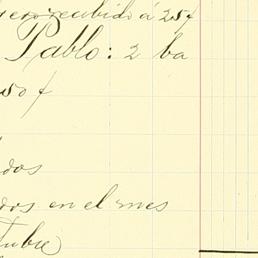 recibido á 25 f
Pablo: 2 ba
50 f
dos
dos en el mes
tubre